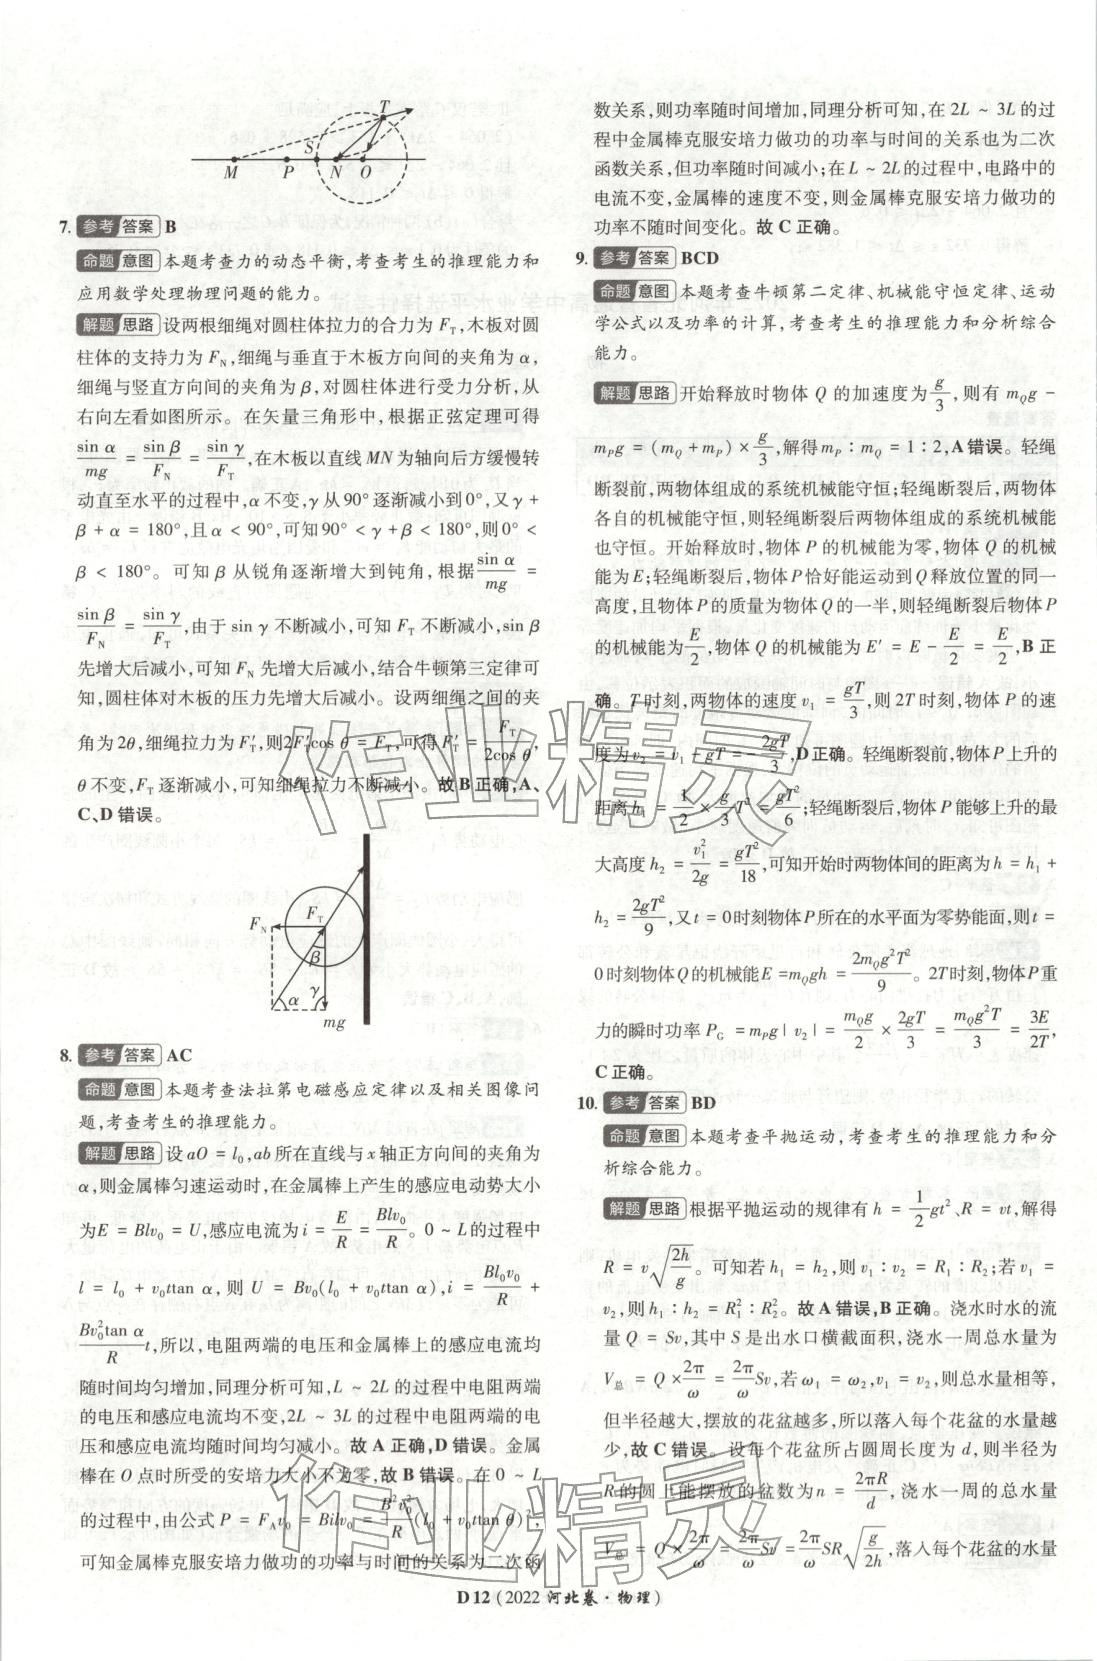 T
S
M P N O
7. 参考 答案 B
命题 意图 本题考查力的动态平衡,考查考生的推理能力和
应用数学处理物理问题的能力。
解题 思路 设两根细绳对圆柱体拉力的合力为 F_T,木板对圆
柱体的支持力为 F_N,细绳与垂直于木板方向间的夹角为 α,
细绳与竖直方向间的夹角为 β,对圆柱体进行受力分析,从
右向左看如图所示。在矢量三角形中,根据正弦定理可得
sin α/mg = sin β/F_N = sin γ/F_T,在木板以直线 MN 为轴向后方缓慢转
动直至水平的过程中,α 不变,γ 从 90° 逐渐减小到 0°,又 γ +
β + α = 180°,且 α < 90°,可知 90° < γ + β < 180°,则 0° <
β < 180°。可知 β 从锐角逐渐增大到钝角,根据 sin α/mg =
sin β/F_N = sin γ/F_T,由于 sin γ 不断减小,可知 F_T 不断减小,sin β
先增大后减小,可知 F_N 先增大后减小,结合牛顿第三定律可
知,圆柱体对木板的压力先增大后减小。设两细绳之间的夹
角为 2θ,细绳拉力为 F_T′,则 2F_T′cos θ = F_T,可得 F_T′ = F_T/2cos θ,
θ 不变,F_T 逐渐减小,可知细绳拉力不断减小。故 B 正确,A、
C、D 错误。
F_N F_T
α γ
mg
8. 参考 答案 AC
命题 意图 本题考查法拉第电磁感应定律以及相关图像问
题,考查考生的推理能力。
解题 思路 设 aO = l₀,ab 所在直线与 x 轴正方向间的夹角为
α,则金属棒匀速运动时,在金属棒上产生的感应电动势大小
为 E = Blv₀ = U,感应电流为 i = E/R = Blv₀/R。0 ~ L 的过程中
l = l₀ + v₀ttan α,则 U = Bv₀(l₀ + v₀ttan α),i = Bl₀v₀/R +
Bv₀²tan α/R t,所以,电阻两端的电压和金属棒上的感应电流均
随时间均匀增加,同理分析可知,L ~ 2L 的过程中电阻两端
的电压和感应电流均不变,2L ~ 3L 的过程中电阻两端的电
压和感应电流均随时间均匀减小。故 A 正确,D 错误。金属
棒在 O 点时所受的安培力大小不为零,故 B 错误。在 0 ~ L
的过程中,由公式 P = F_A v₀ = Bilv₀ = B²v₀²/R (l₀ + v₀ttan θ)²,
可知金属棒克服安培力做功的功率与时间的关系为二次函
数关系,则功率随时间增加,同理分析可知,在 2L ~ 3L 的过
程中金属棒克服安培力做功的功率与时间的关系也为二次
函数关系,但功率随时间减小;在 L ~ 2L 的过程中,电路中的
电流不变,金属棒的速度不变,则金属棒克服安培力做功的
功率不随时间变化。故 C 正确。
9. 参考 答案 BCD
命题 意图 本题考查牛顿第二定律、机械能守恒定律、运动
学公式以及功率的计算,考查考生的推理能力和分析综合
能力。
解题 思路 开始释放时物体 Q 的加速度为 g/3,则有 m_Q g −
m_P g = (m_Q + m_P) × g/3,解得 m_P : m_Q = 1 : 2,A 错误。轻绳
断裂前,两物体组成的系统机械能守恒;轻绳断裂后,两物体
各自的机械能守恒,则轻绳断裂后两物体组成的系统机械能
也守恒。开始释放时,物体 P 的机械能为零,物体 Q 的机械
能为 E;轻绳断裂后,物体 P 恰好能运动到 Q 释放位置的同一
高度,且物体 P 的质量为物体 Q 的一半,则轻绳断裂后物体 P
的机械能为 E/2,物体 Q 的机械能为 E′ = E − E/2 = E/2,B 正
确。T 时刻,两物体的速度 v₁ = gT/3,则 2T 时刻,物体 P 的速
度为 v₂ = v₁ − gT = − 2gT/3,D 正确。轻绳断裂前,物体 P 上升的
距离 h₁ = 1/2 × g/3 T² = gT²/6;轻绳断裂后,物体 P 能够上升的最
大高度 h₂ = v₁²/2g = gT²/18,可知开始时两物体间的距离为 h = h₁ +
h₂ = 2gT²/9,又 t = 0 时刻物体 P 所在的水平面为零势能面,则 t =
0 时刻物体 Q 的机械能 E = m_Q gh = 2m_Q g²T²/9。2T 时刻,物体 P 重
力的瞬时功率 P_G = m_P g | v₂ | = m_Q g/2 × 2gT/3 = m_Q g²T/3 = 3E/2T,
C 正确。
10. 参考 答案 BD
命题 意图 本题考查平抛运动,考查考生的推理能力和分
析综合能力。
解题 思路 根据平抛运动的规律有 h = 1/2 gt²、R = vt,解得
R = v√(2h/g)。可知若 h₁ = h₂,则 v₁ : v₂ = R₁ : R₂;若 v₁ =
v₂,则 h₁ : h₂ = R₁² : R₂²。故 A 错误,B 正确。浇水时水的流
量 Q = Sv,其中 S 是出水口横截面积,浇水一周总水量为
V总 = Q × 2π/ω = 2π/ω Sv,若 ω₁ = ω₂,v₁ = v₂,则总水量相等,
但半径越大,摆放的花盆越多,所以落入每个花盆的水量越
少,故 C 错误。设每个花盆所占圆周长度为 d,则半径为
R 的圆上能摆放的盆数为 n = 2πR/d,浇水一周的总水量
V总 = Q × 2π/ω = 2π/ω Sv = 2π/ω SR√(g/2h),落入每个花盆的水量
作业精灵
作业精灵
D 12 (2022 河北卷 · 物理)